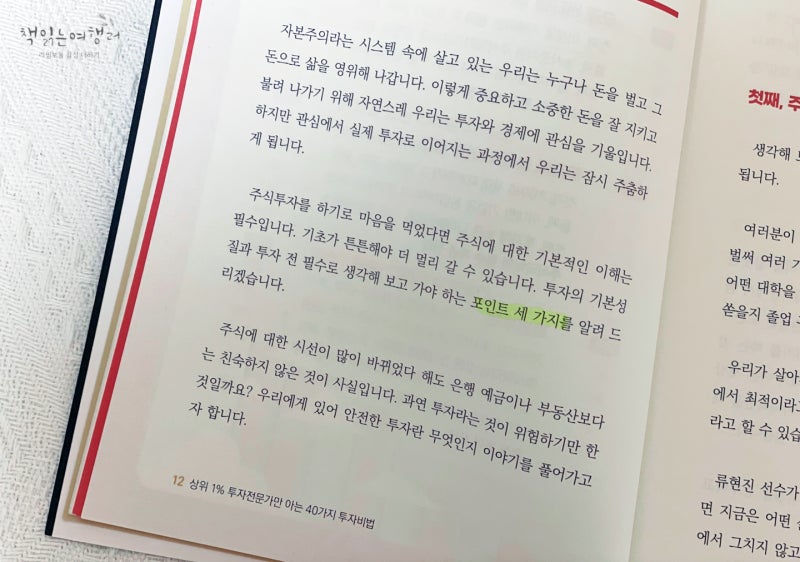 책읽는여행러
자본주의라는 시스템 속에 살고 있는 우리는 누구나 돈을 벌고 그
돈으로 삶을 영위해 나갑니다. 이렇게 중요하고 소중한 돈을 잘 지키고
불려 나가기 위해 자연스레 우리는 투자와 경제에 관심을 기울입니다.
하지만 관심에서 실제 투자로 이어지는 과정에서 우리는 잠시 주춤하
게 됩니다.
주식투자를 하기로 마음을 먹었다면 주식에 대한 기본적인 이해는
필수입니다. 기초가 튼튼해야 더 멀리 갈 수 있습니다. 투자의 기본성
질과 투자 전 필수로 생각해 보고 가야 하는 포인트 세 가지를 알려 드
리겠습니다.
주식에 대한 시선이 많이 바뀌었다 해도 은행 예금이나 부동산보다
는 친숙하지 않은 것이 사실입니다. 과연 투자라는 것이 위험하기만 한
것일까요? 우리에게 있어 안전한 투자란 무엇인지 이야기를 풀어가고
자 합니다.
12 상위 1% 투자전문가만 아는 40가지 투자비법
첫째, 주
생각해 보
됩니다.
여러분이
벌써 여러 가
어떤 대학을
쏟을지 졸업
우리가 살아
에서 최적이라고
라고 할 수 있습
류현진 선수가
면 지금은 어떤
에서 그치지 않고